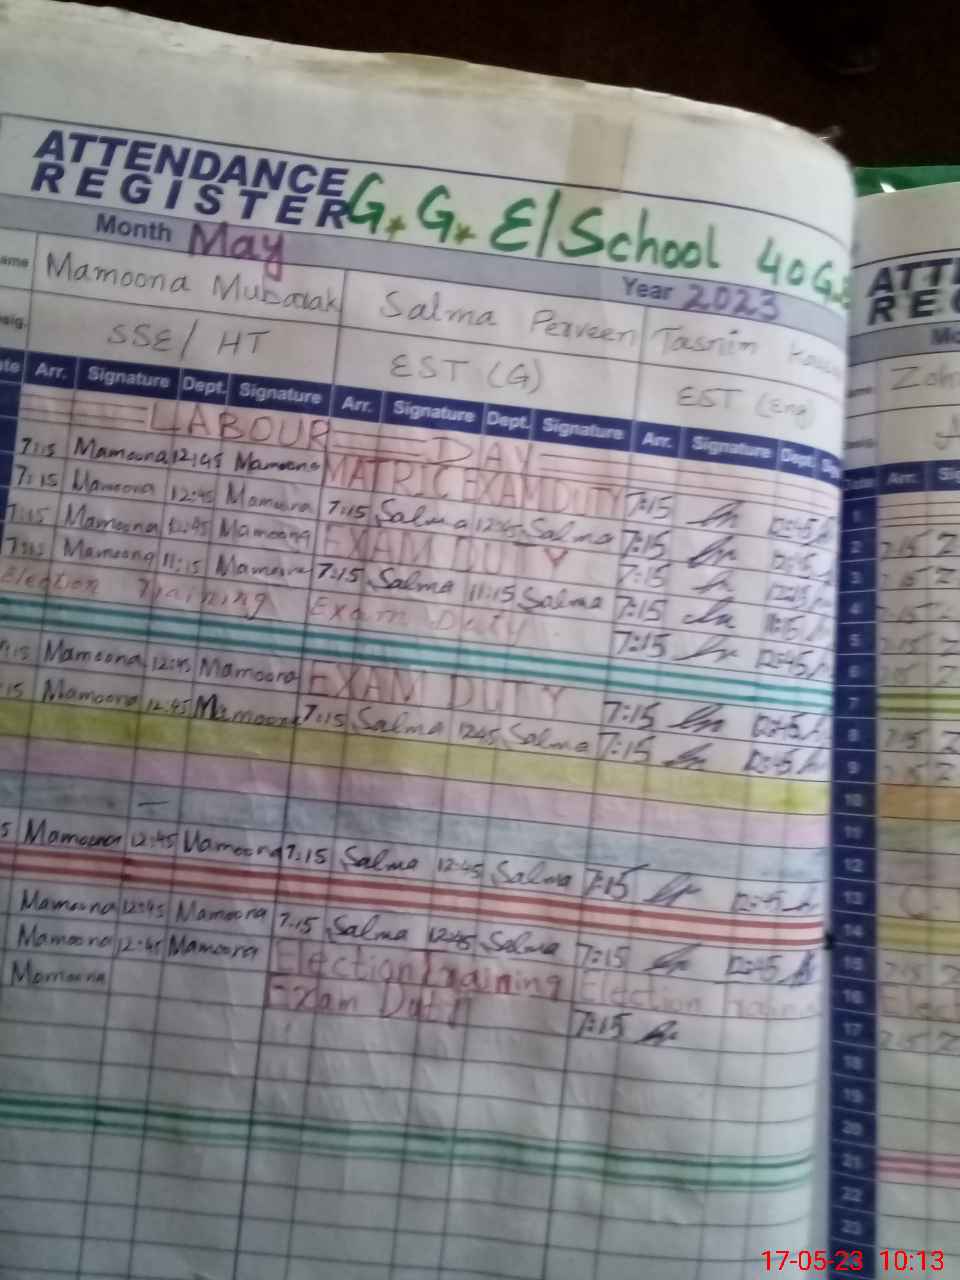 ATTENDANCE
REGISTER G.G. E/School 40 G.
Month May Year 2023
ame Mamoona Mubarak Salma Perveen Tasnim
sig. SSE/ HT EST (G) EST (Eng)
te Arr. Signature Dept. Signature Arr. Signature Dept. Signature Arr. Signature Dept.
LABOUR DAY
7:15 Mamoona 12:45 Mamoona MATRIC EXAM DUTY 7:15 12:45
7:15 Mamoona 12:45 Mamoona 7:15 Salma 12:45 Salma 7:15 12:45
7:15 Mamoona 12:45 Mamoona EXAM DUTY 7:15 12:45
7:15 Mamoona 11:15 Mamoona 7:15 Salma 11:15 Salma 7:15 11:15
Election Training Exam Duty 7:15 12:45
7:15 Mamoona 12:45 Mamoona EXAM DUTY 7:15 12:45
15 Mamoona 12:45 Mamoona 7:15 Salma 12:45 Salma 7:15 12:45
5 Mamoona 12:45 Mamoona 7:15 Salma 12:45 Salma 7:15 12:45
Mamoona 12:45 Mamoona 7:15 Salma 12:45 Salma 7:15 12:45
Mamoona 12:45 Mamoona Election Training Election Training
Momoona Exam Duty 7:15
ATT
REG
Mo
Zoh
Date Arr. Sig
1
2 7:15 Z
3 7:15 Z
4 7:15 Z
5 7:15 Z
6 7:15 Z
7
8 7:15 Z
9 7:15 Z
10
11
12
13
14
15 7:15 Z
16 Elect
17 7:15 Z
18
19
20
21
22
23
17-05-23 10:13